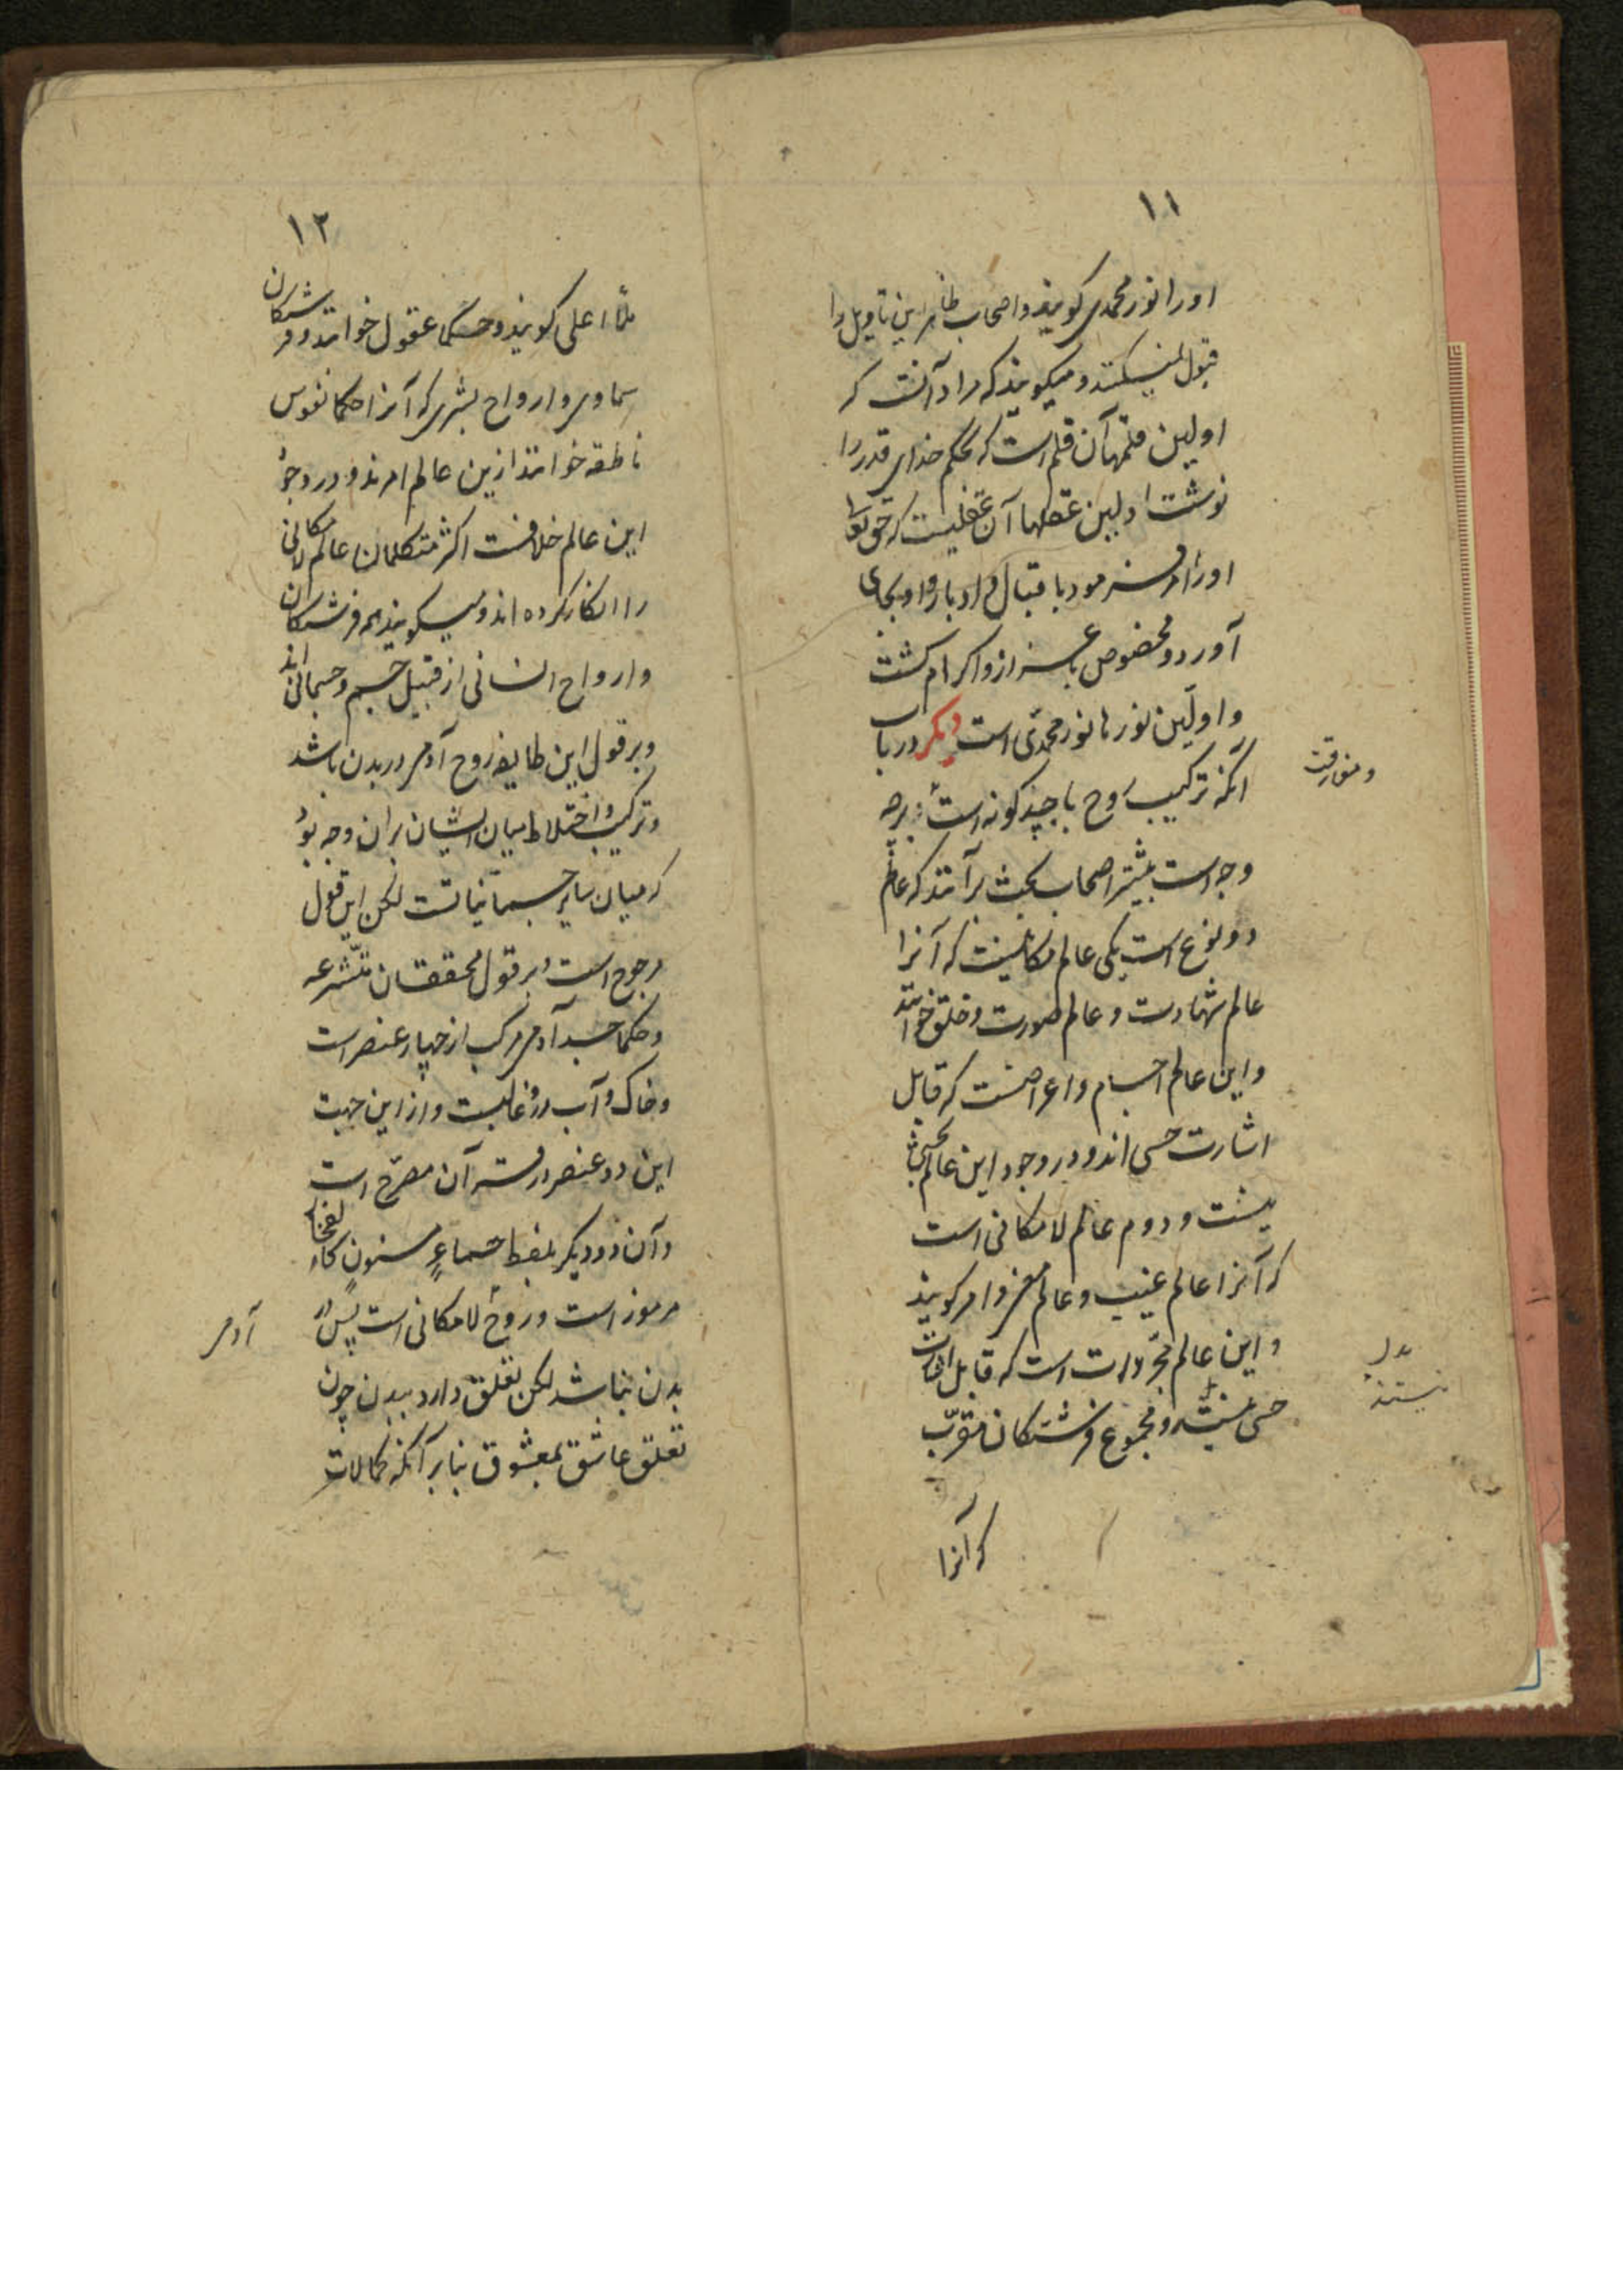 ۱۱
اورا نور محمدی کویند واصحاب ظاهر این تاویل را
قبول نمیکنند ومیکویند که مراد آنست که
اولین قلمها آن قلم است که بحکم خدای قدر را
نوشت اولین عقلها آن عقلیست که حق تعا
اورا امر فرمود باقبال وادبار واو بجای
آورد ومخصوص باعزاز واکرام کشت
واولین نورها نور محمدی است دیکر در باب
آنکه ترکیب روح با چند کونه است برچه
ومفارقت
وجه است بیشتر اصحاب بحث برآنند که عالم
دو نوع است یکی عالم مکانیست که آنرا
عالم شهادت وعالم صورت وخلق خوانند
واین عالم اجسام واعراضست که قابل
اشارت حسی اند ودر وجود این عالم بحثی
نیست ودوم عالم لا مکانی است
که آنرا عالم غیب وعالم امر کویند
واین عالم مجردات است که قابل اشارت
حسی نیستند ومجموع فرشتکان مقرب
بدل
نیستند
که آنرا
۱۲
ملأ اعلی کویند وحکما عقول خوانند وفرشتکان
سماوی وارواح بشری که آنرا حکما نفوس
ناطقه خوانند ازین عالم امرند ودر وجود
این عالم خلافست اکثر متکلمان عالم لا مکانی
را انکار کرده اند ومیکویند همه فرشتکان
وارواح انسانی از قبیل جسم وجسمانی اند
وبر قول این طایفه روح آدمی در بدن باشد
وترکیب واختلاط میان ایشان بران وجه بود
که میان سایر جسمانیاتست لکن این قول
مرجوح است وبر قول محققان متشرعه
وحکما جسد آدمی مرکب از چهار عنصر است
وخاک وآب درو غالبست واز این جهت
این دو عنصر در قرآن مصرح است
وآن دو دیکر بلفظ حماءٍ مسنونٍ کالفخار
مرموز است وروح لا مکانی است پس در
آدمی
بدن نباشد لکن تعلق دارد ببدن چون
تعلق عاشق بمعشوق بنابر آنکه کمالات